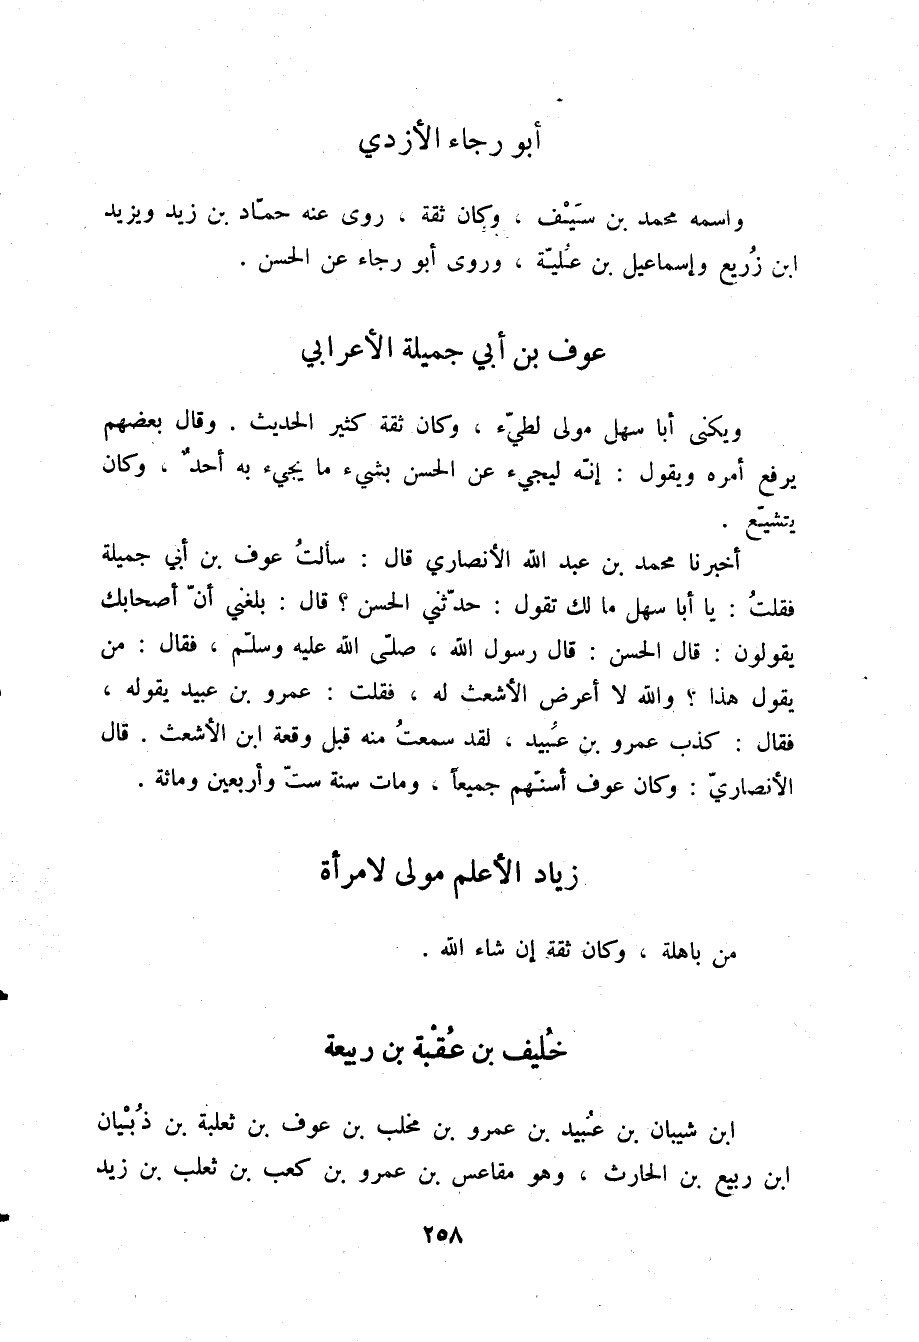 أبو رجاء الأزدي
واسمه محمد بن سَيْف ، وكان ثقة ، روى عنه حمّاد بن زيد ويزيد
ابن زُريع وإسماعيل بن عُليّة ، وروى أبو رجاء عن الحسن .
عوف بن أبي جميلة الأعرابي
ويكنى أبا سهل مولى لطيّء ، وكان ثقة كثير الحديث . وقال بعضهم
يرفع أمره ويقول : إنّه ليجيء عن الحسن بشيء ما يجيء به أحدٌ ، وكان
يتشيّع .
أخبرنا محمد بن عبد الله الأنصاري قال : سألتُ عوف بن أبي جميلة
فقلتُ : يا أبا سهل ما لك تقول : حدّثني الحسن ؟ قال : بلغني أنّ أصحابك
يقولون : قال الحسن : قال رسول الله ، صلّى الله عليه وسلّم ، فقال : من
يقول هذا ؟ والله لا أعرض الأشعث له ، فقلت : عمرو بن عبيد يقوله ،
فقال : كذب عمرو بن عُبيد ، لقد سمعتُ منه قبل وقعة ابن الأشعث . قال
الأنصاريّ : وكان عوف أسنّهم جميعاً ، ومات سنة ستّ وأربعين ومائة .
زياد الأعلم مولى لامرأة
من باهلة ، وكان ثقة إن شاء الله .
خُليف بن عُقْبة بن ربيعة
ابن شيبان بن عُبيد بن عمرو بن مخلب بن عوف بن ثعلبة بن ذُبْيان
ابن ربيع بن الحارث ، وهو مقاعس بن عمرو بن كعب بن ثعلب بن زيد
٢٥٨